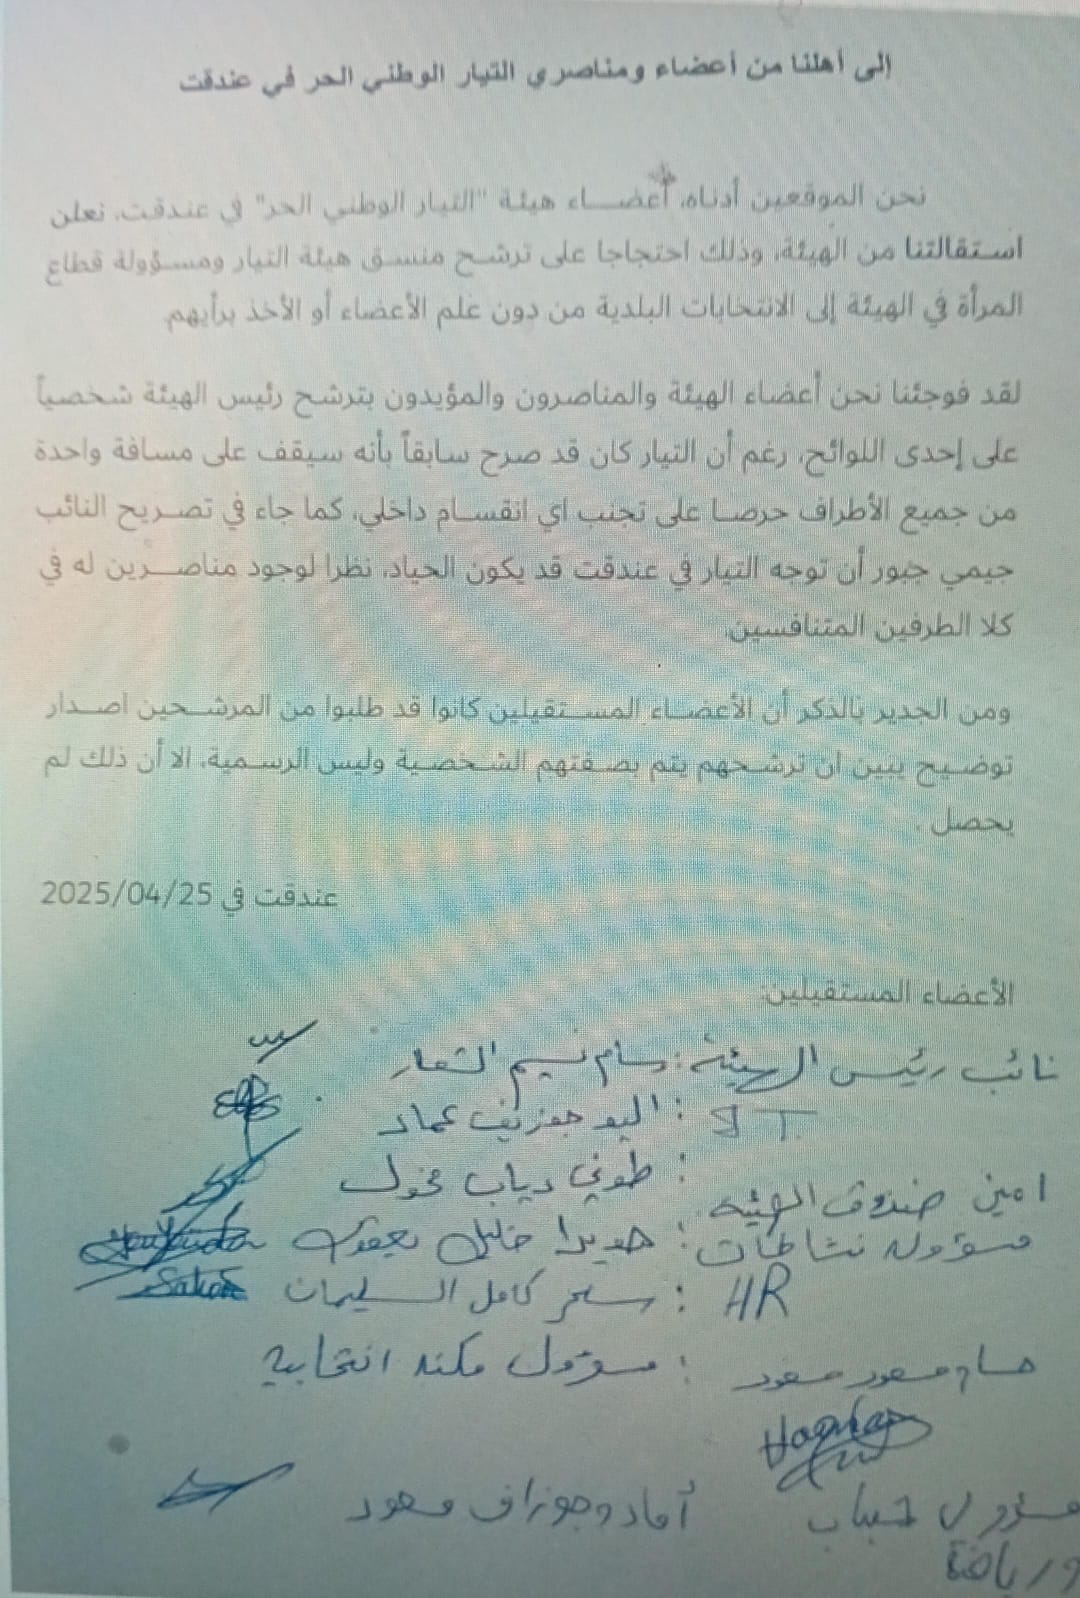 إلى أهلنا من أعضاء ومناصري التيار الوطني الحر في عندقت
نحن الموقعين أدناه، أعضاء هيئة "التيار الوطني الحر" في عندقت، نعلن
استقالتنا من الهيئة، وذلك احتجاجا على ترشح منسق هيئة التيار ومسؤولة قطاع
المرأة في الهيئة إلى الانتخابات البلدية من دون علم الأعضاء أو الأخذ برأيهم.
لقد فوجئنا نحن أعضاء الهيئة والمناصرون والمؤيدون بترشح رئيس الهيئة شخصياً
على إحدى اللوائح، رغم أن التيار كان قد صرح سابقاً بأنه سيقف على مسافة واحدة
من جميع الأطراف حرصا على تجنب اي انقسام داخلي، كما جاء في تصريح النائب
جيمي جبور أن توجه التيار في عندقت قد يكون الحياد، نظرا لوجود مناصرين له في
كلا الطرفين المتنافسين.
ومن الجدير بالذكر أن الأعضاء المستقيلين كانوا قد طلبوا من المرشحين اصدار
توضيح يبين ان ترشحهم يتم بصفتهم الشخصية وليس الرسمية، الا أن ذلك لم
يحصل .
عندقت في 2025/04/25
الأعضاء المستقيلين:
نائب رئيس الهيئة: بسام نسيم الشعار
IT : اليو جوزيف عماد
امين صندوق الهيئة : طوني دياب مخول
مسؤولة نشاطات : هويدا خليل يعقوب
HR : سحر كامل السليمان Sahar
حسام مسعود مسعود : مسؤول مكنة انتخابية
مسؤول شباب ورياضة جوزاف مسعود